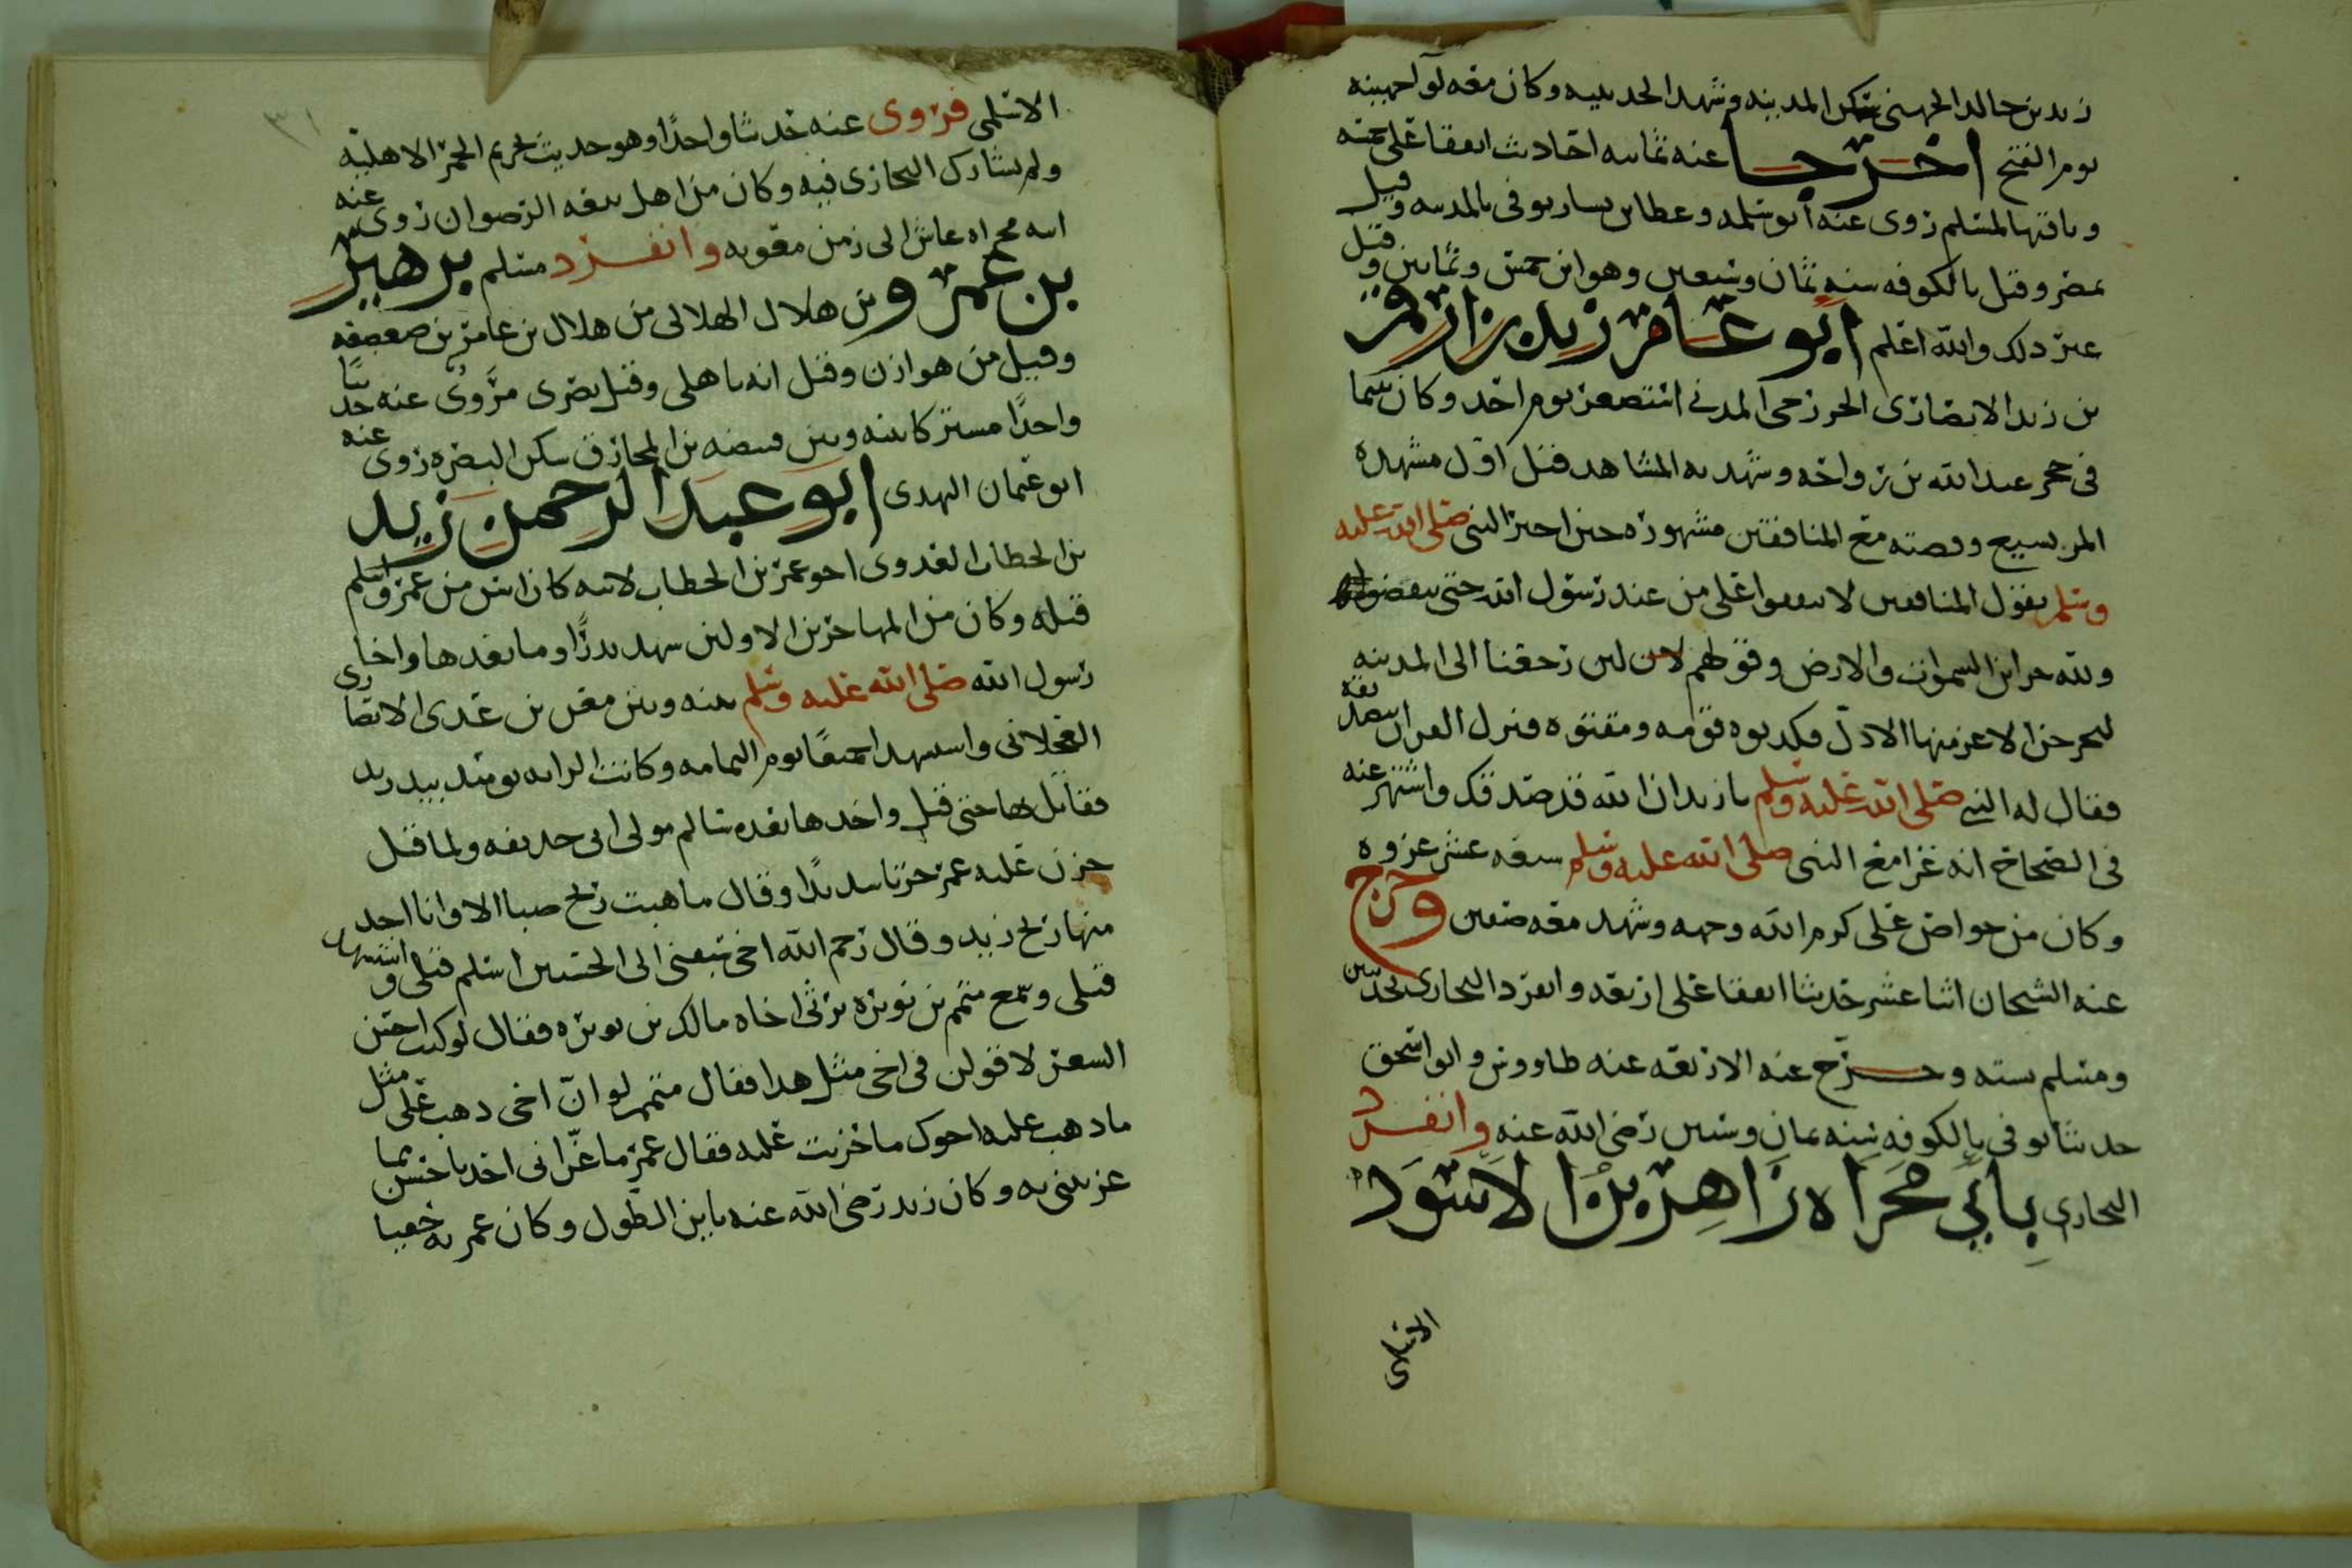 زيد بن خالد الجهني سكن المدينه وشهد الحديبيه وكان معه لوا جهينه
يوم الفتح اخرجا عنه ثمانيه احاديث اتفقا على خمسه
وباقيها لمسلم روى عنه ابو سلمه وعطا بن يسار توفى بالمدينه وقيل
بمصر وقيل بالكوفه سنه ثمان وسبعين وهو ابن خمس وثمانين وقيل
غير ذلك والله اعلم ابو عامر زيد بن ارقم
بن زيد الانصارى الخزرجى المدني استصغر يوم احد وكان يتيما
فى حجر عبد الله بن رواحه وشهد به المشاهد قيل اول مشهده
المريسيع وقصته مع المنافقين مشهوره حين اخبر النبى صلى الله عليه
وسلم بقول المنافقين لا تنفقوا على من عند رسول الله حتى ينفضوا
ولله خزاين السموات والارض وقولهم لين رجعنا الى المدينه
ليخرجن الاعز منها الاذل فكذبوه قومه ومقتوه فنزل القران بتصديقه
فقال له النبي صلى الله عليه وسلم يا زيد ان الله قد صدقك واشتهر عنه
فى الصحاح انه غزا مع النبى صلى الله عليه وسلم سبعه عشر غزوه
وكان من خواص على كرم الله وجهه وشهد معه صفين وخرج
عنه الشيخان اثنا عشر حديثا اتفقا على اربعه وانفرد البخارى بحديثين
ومسلم بسته وخرج عنه الاربعه عنه طاووس وابو اسحق
حديثا توفى بالكوفه سنه ثمان وستين رضى الله عنه وانفرد
البخارى بابي مجراه زاهر بن الاسود
الاسلمى
٣١
الاسلمى فروى عنه حديثا واحدًا وهو حديث تحريم الحمر الاهليه
ولم يشارك البخارى فيه وكان من اهل بيعه الرضوان روى عنه
ابنه مجراه عاش الى زمن معويه وانفرد مسلم بزهير
بن عمرو بن هلال الهلالى من هلال بن عامر بن صعصعه
وقيل من هوازن وقيل انه باهلى وقيل بصرى مروى عنه حديثا
واحدًا مشتركا بينه وبين قبيصه بن المخارق سكن البصره روى عنه
ابو عثمان النهدى ابو عبد الرحمن زيد
بن الخطاب العدوى اخو عمر بن الخطاب لابيه كان اسن من عمر واسلم
قبله وكان من المهاجرين الاولين شهد بدرًا وما بعدها واخا
رسول الله صلى الله عليه وسلم بينه وبين معن بن عدى الانصارى
العجلانى واستشهدا جميعًا يوم اليمامه وكانت الرايه يومئذ بيد زيد
فقاتل بها حتى قتل واخذها بعده سالم مولى ابى حذيفه ولما قتل
حزن عليه عمر حزنا شديدًا وقال ما هبت ريح صبا الا وانا اجد
منها ريح زيد وقال رحم الله اخى سبقنى الى الحسنيين اسلم قبلى واستشهد
قبلى وسمع متمم بن نويره يرثى اخاه مالك بن نويره فقال لو كنت احسن
الشعر لاقولن فى اخى مثل هذا فقال متمم لو ان اخى ذهب على مثل
ما ذهب عليه اخوك ما حزنت عليه فقال عمر ما عزانى احد باحسن بما
عزيتنى به وكان زيد رضى الله عنه باين الطول وكان عمر به معجبا